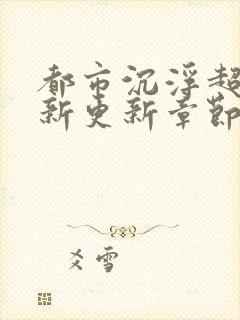 都市沉浮超
新更新章節
爻雪